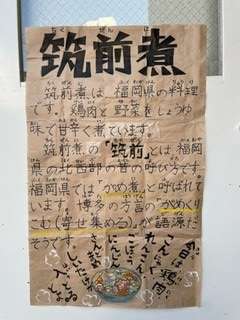 筑前煮
筑前煮は福岡県の料理
です。鶏肉と野菜をしょうゆ
味で甘辛く煮ています。
筑前煮の「筑前」とは福岡
県の北西部の昔の呼び方です。
福岡県では「がめ煮」と呼ばれて
います。博多の方言の「がめくり
こむ(寄せ集める)」が語源だ
そうです。
今日は、鶏肉
れんこん
ごぼう
にんじん
こんにゃく
しいたけ